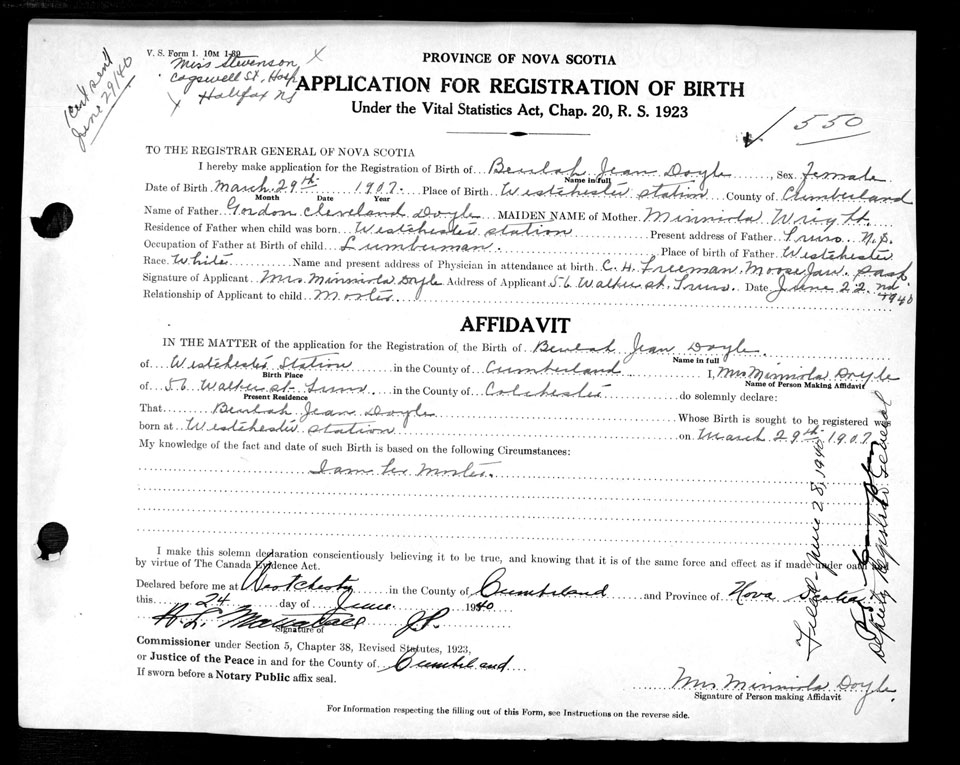 V. S. Form 1. 10M 1-39
Miss Stevenson
Cogswell St. Hosp
Halifax NS
Cert sent
June 29/40
PROVINCE OF NOVA SCOTIA
APPLICATION FOR REGISTRATION OF BIRTH
Under the Vital Statistics Act, Chap. 20, R. S. 1923
550
TO THE REGISTRAR GENERAL OF NOVA SCOTIA
I hereby make application for the Registration of Birth of Beulah Jean Doyle Sex female
Name in full
Date of Birth March 29th 1907. Place of Birth Westchester Station County of Cumberland
Month Date Year
Name of Father Gordon Cleveland Doyle MAIDEN NAME of Mother Minniola Wright.
Residence of Father when child was born Westchester Station Present address of Father Truro N.S.
Occupation of Father at Birth of child Lumberman. Place of birth of Father Westchester
Race White Name and present address of Physician in attendance at birth C. H. Freeman Moose Jaw. Sask
Signature of Applicant Mrs Minniola Doyle Address of Applicant 56 Walker St. Truro. Date June 22nd 1940
Relationship of Applicant to child Mother
AFFIDAVIT
IN THE MATTER of the application for the Registration of the Birth of Beulah Jean Doyle.
Name in full
of Westchester Station in the County of Cumberland I, Mrs Minniola Doyle
Birth Place Name of Person Making Affidavit
of 56 Walker St. Truro. in the County of Colchester do solemnly declare:
Present Residence
That Beulah Jean Doyle Whose Birth is sought to be registered was
born at Westchester Station on March 29th 1907
My knowledge of the fact and date of such Birth is based on the following Circumstances:
I am her Mother.
I make this solemn declaration conscientiously believing it to be true, and knowing that it is of the same force and effect as if made under oath and
by virtue of The Canada Evidence Act.
Declared before me at Westchester in the County of Cumberland and Province of Nova Scotia
this 24 day of June 1940
J.P.
Signature of
Commissioner under Section 5, Chapter 38, Revised Statutes, 1923,
or Justice of the Peace in and for the County of Cumberland
If sworn before a Notary Public affix seal.
Mrs Minniola Doyle
Signature of Person making Affidavit
For Information respecting the filling out of this Form, see Instructions on the reverse side.
Filed - June 28, 1940
Deputy Registrar General